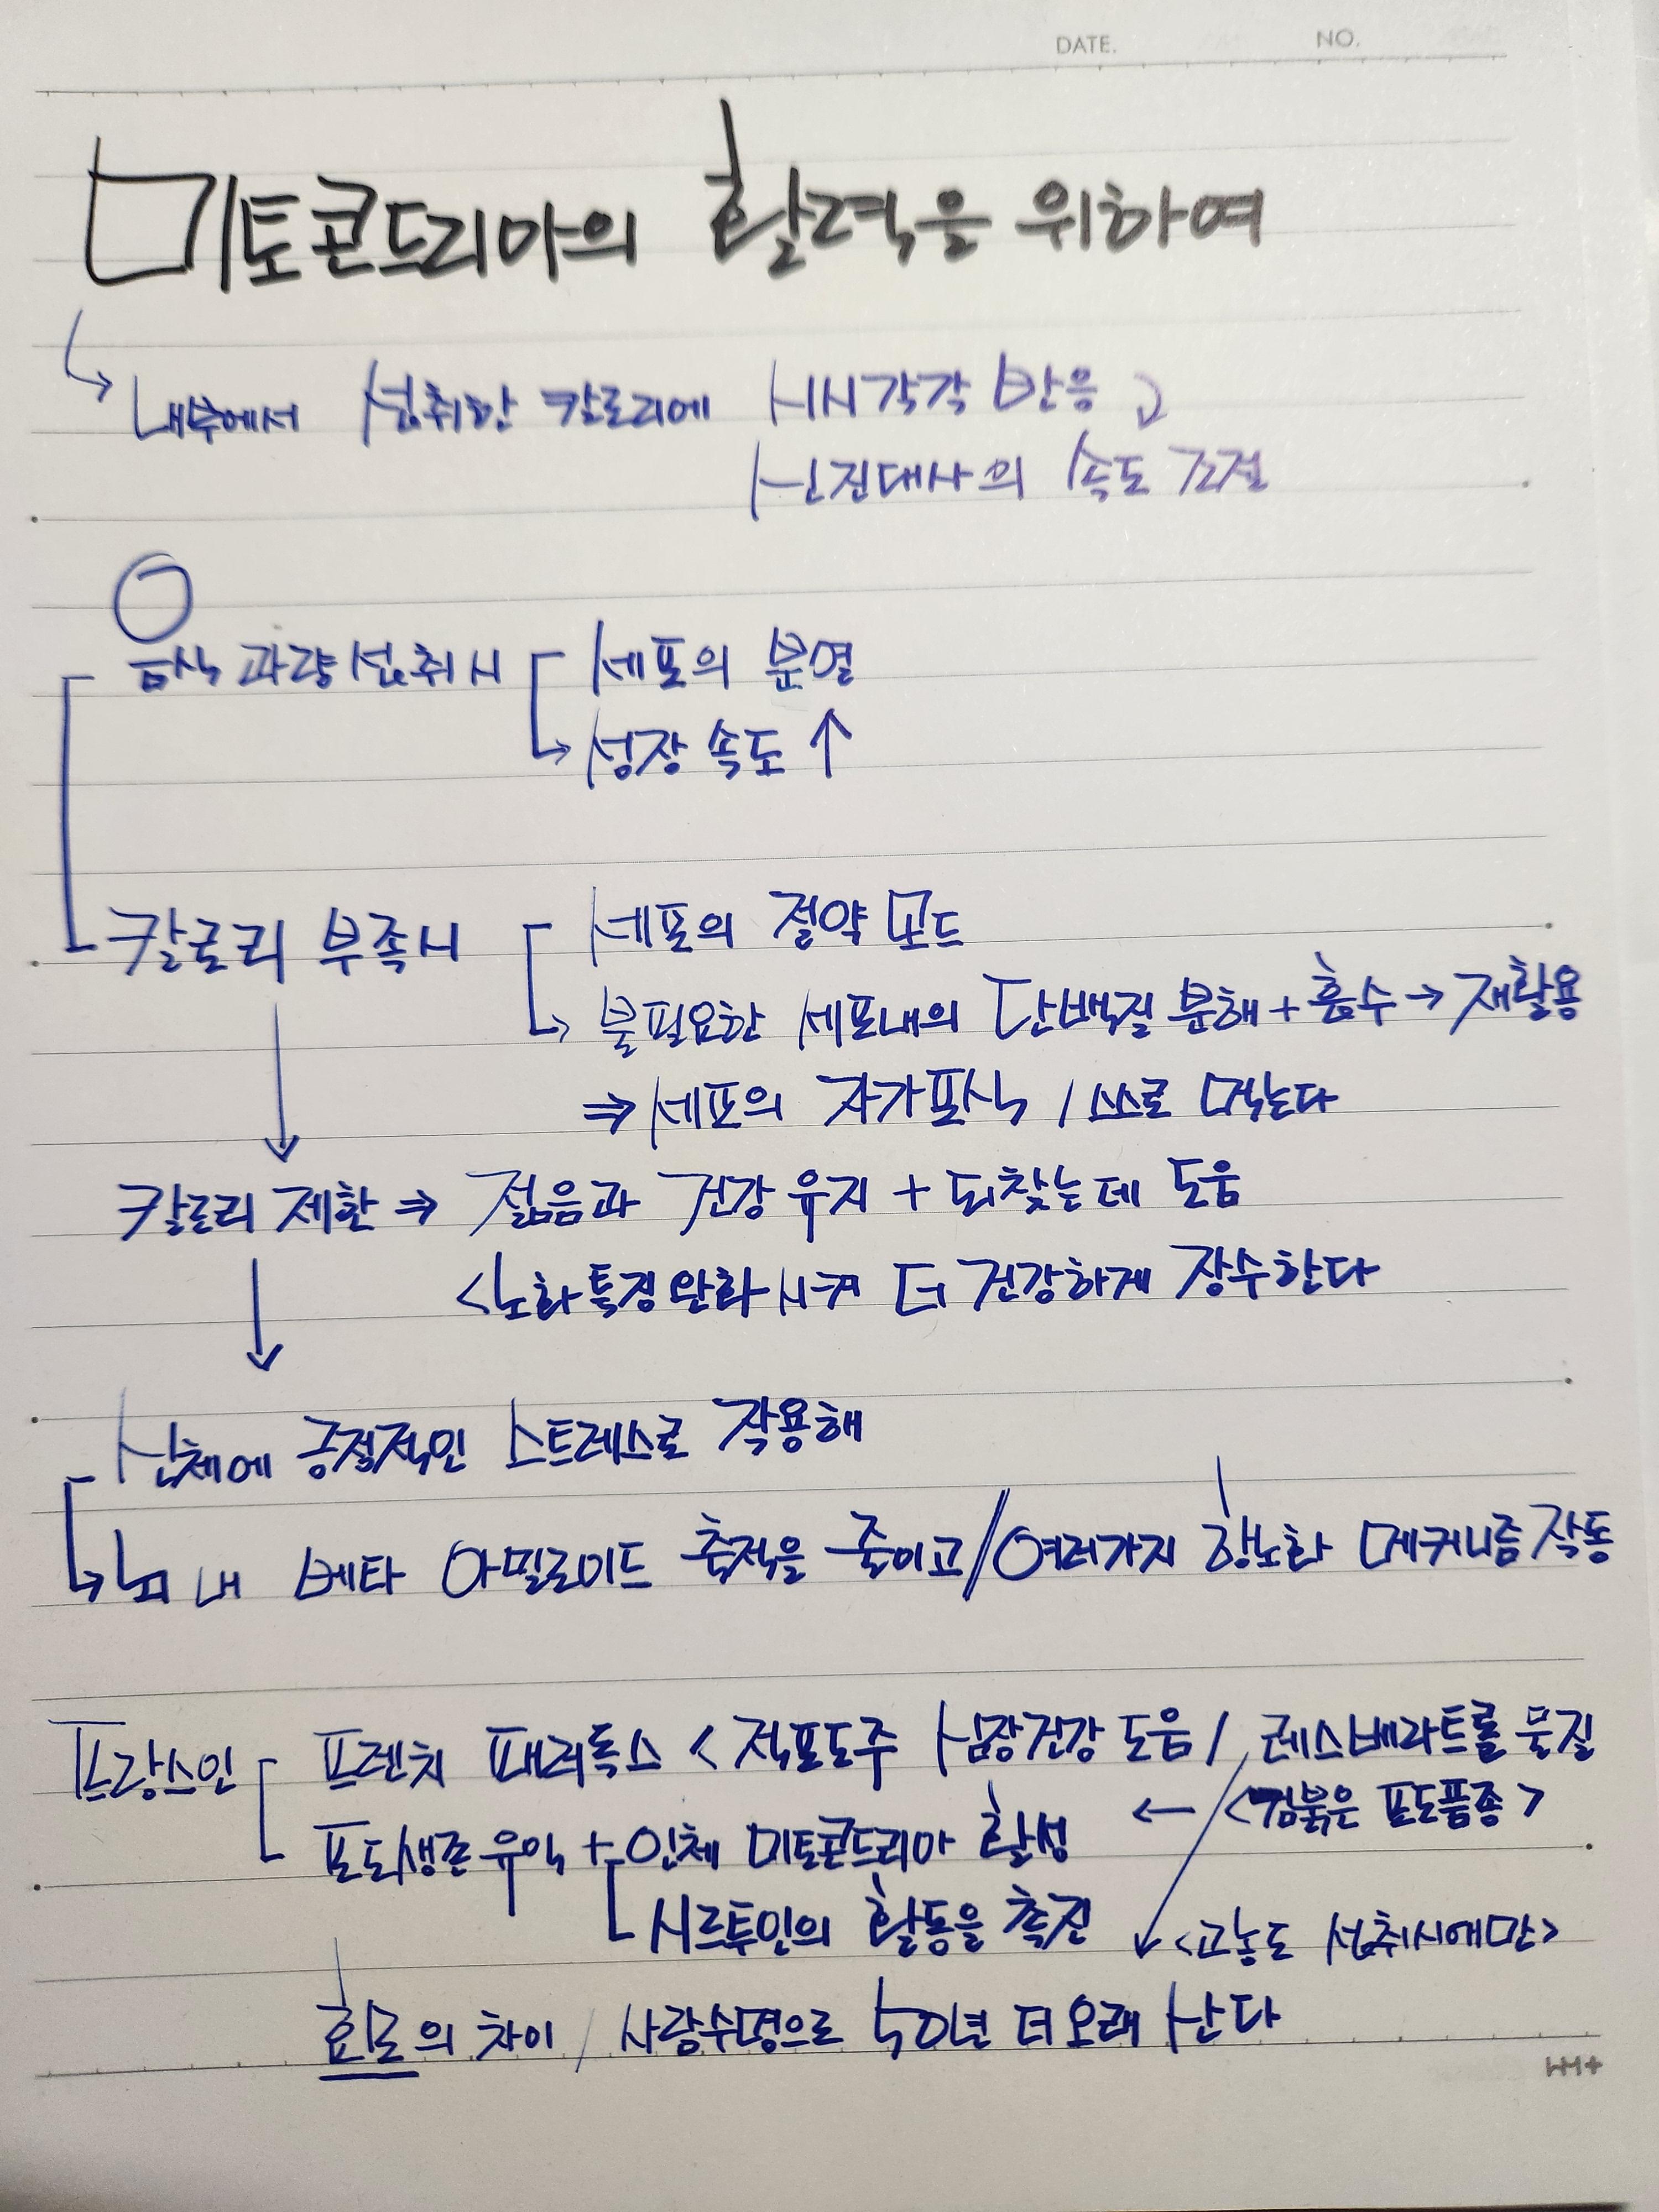 DATE. NO.
미토콘드리아의 활력을 위하여
내부에서 섭취한 칼로리에 시시각각 반응
신진대사의 속도 조절
음식 과량 섭취시 세포의 분열
성장 속도 ↑
칼로리 부족시 세포의 절약 모드
불필요한 세포내의 단백질 분해 + 흡수 → 재활용
⇒ 세포의 자가포식 / 스스로 먹는다
칼로리 제한 ⇒ 젊음과 건강 유지 + 되찾는데 도움
<노화 특정 완화시켜 더 건강하게 장수한다
신체에 긍정적인 스트레스로 작용해
뇌 내 베타 아밀로이드 축적을 줄이고 // 여러가지 항노화 메커니즘 작동
프랑스인 프렌치 패러독스 < 적포도주 심장건강 도움 / 레스베라트롤 물질
포도생존 유익 + 인체 미토콘드리아 활성 ← <검붉은 포도품종>
시르투인의 활동을 촉진 <고농도 섭취시에만>
의 차이 / 사랑수명으로 50년 더 오래 산다